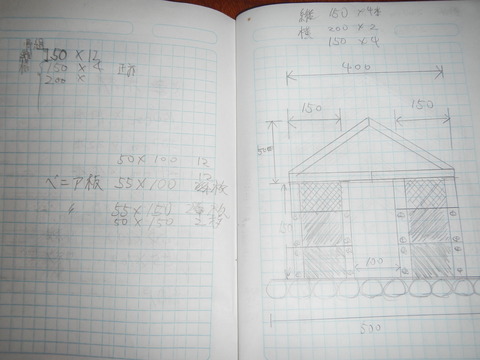 150 × 12
150 × 4 正面
200 ×
50 × 100 12
ベニア板 55 × 100 枚
〃 55 × 150 枚
50 × 150 2枚
縦 150 × 4本
横 200 × 2
150 × 4
400
150 150
100
500